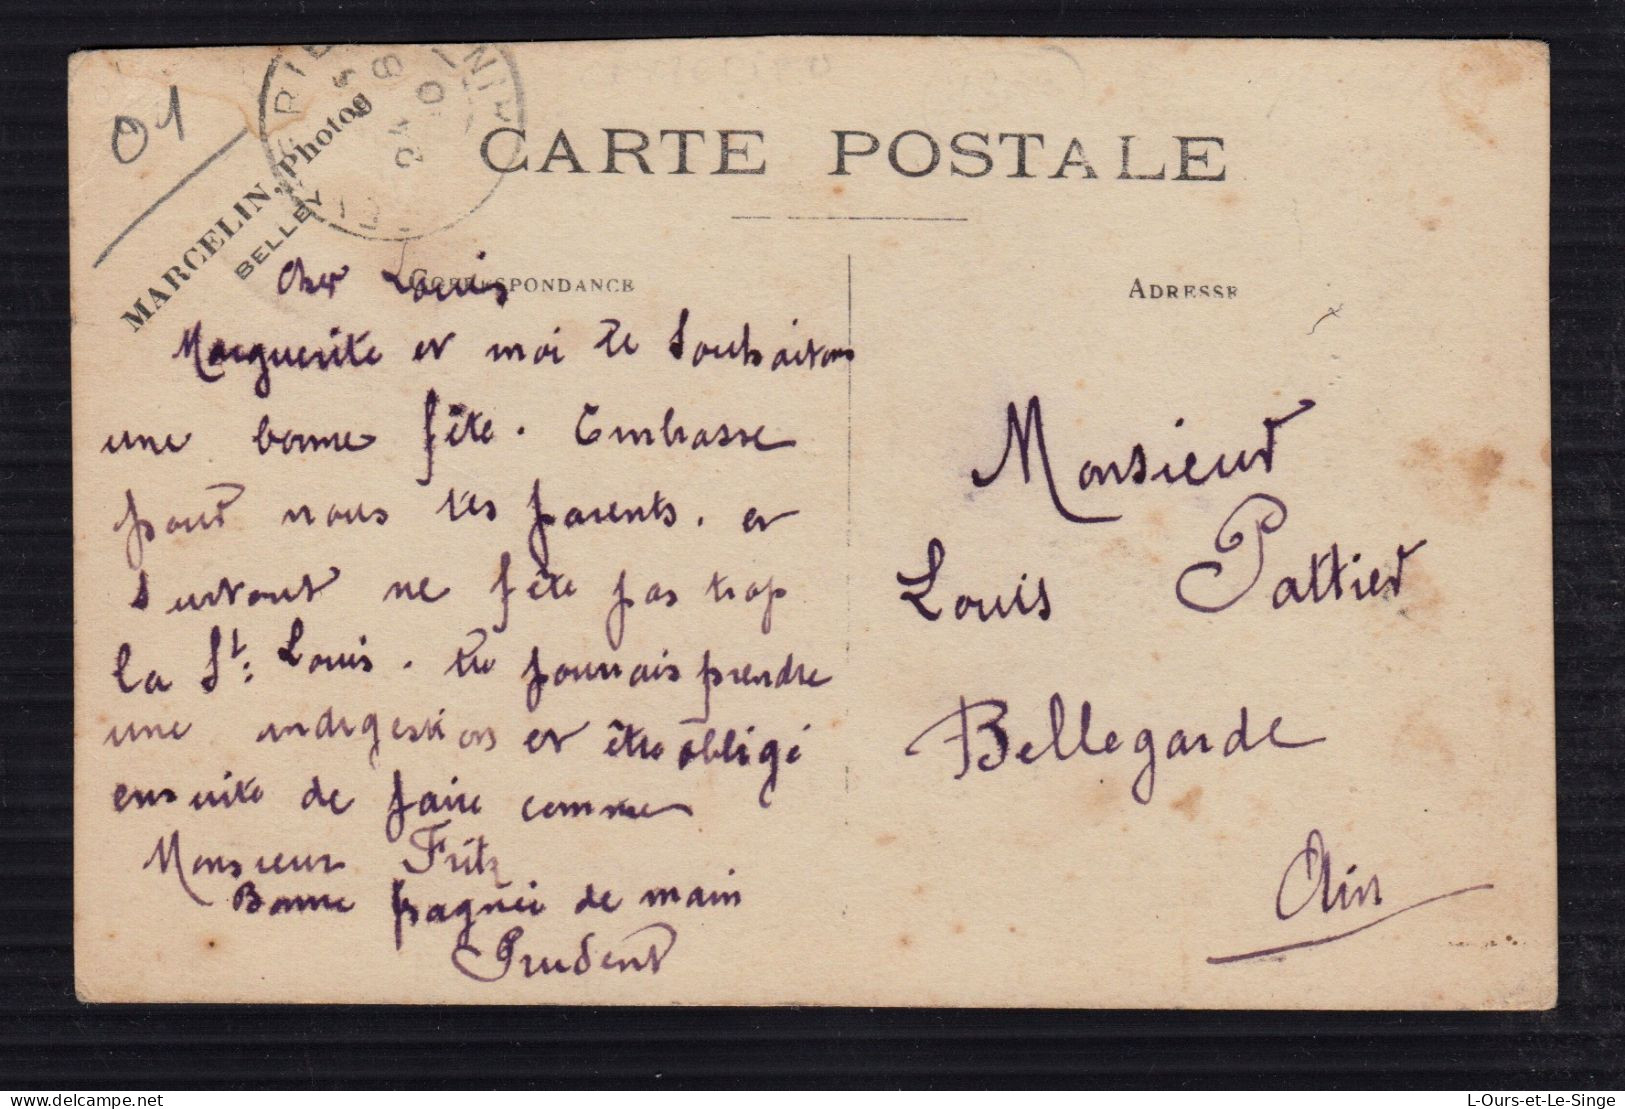 01
MARCELIN, Photog
BELLEY
CARTE POSTALE
CORRESPONDANCE
ADRESSE
Cher Louis
Marguerite et moi te souhaitons
une bonne fête. Embrasse
pour nous tes parents. et
surtout ne fête pas trop
la St: Louis. tu pourrais prendre
une indigestion et être obligé
ensuite de faire comme
Monsieur Fritz
Bonne pognée de main
Prudent
Monsieur
Louis Pattier
Bellegarde
Ain
L-Ours-et-Le-Singe
delcampe.net